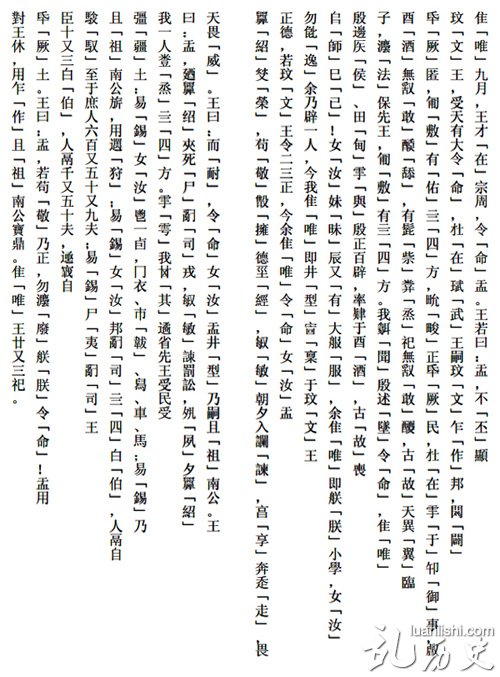 隹「唯」九月，王才「在」宗周，令「命」盂。王若曰：盂，不「丕」顯
玟「文」王，受天有大令「命」，杜「在」珷「武」王嗣玟「文」乍「作」邦，「闢」
氒「厥」匿，匍「敷」有「佑」亖「四」方，畍「畯」正氒「厥」民，杜「在」雩「于」卸「御」事，𠭯
酉「酒」無敢「敢」醻「舔」，有髭「祡」䔲「烝」祀無敢「敢」醻，古「故」天異「翼」臨
子，灋「法」保先王，匍「敷」有亖「四」方。我「聞」殷述「墜」令「命」，隹「唯」
殷邊「侯」、田「甸」雩「與」殷正百辟，率肄于酉「酒」，古「故」喪
𠂤「師」巳「已」！女「汝」妹「昧」辰又「有」大「服」，余隹「唯」即「朕」小學，女「汝」
勿「逸」余乃辟一人，今我隹「唯」即井「型」㐭「稟」于玟「文」王
正德，若玟「文」王令二三正，今余隹「唯」令「命」女「汝」盂
「紹」「榮」，苟「敬」「擁」德巠「經」，「敏」朝夕入讕「諫」，亯「享」奔「走」，畏
天畏「威」。王曰：而「耐」，令「命」女「汝」盂井「型」乃嗣且「祖」南公。王
曰：盂，廼「紹」夾死「尸」𤔲「司」戎，「敏」諫罰訟，「夙」夕「紹」
我一人「烝」亖「四」方。雩「粵」我「其」遹省先王受民受
彊「疆」土；易「錫」女「汝」鬯一卣，冂衣、巿「韍」、舄、車、馬；易「錫」乃
且「祖」南公旂，用「狩」；易「錫」女「汝」邦𤔲「司」亖「四」白「伯」，人鬲自
「馭」至于庶人六百又五十又九夫；易「錫」尸「夷」𤔲「司」王
臣十又三白「伯」，人鬲千又五十夫，寏自
氒「厥」土。王曰：盂，若苟「敬」乃正，勿灋「廢」「朕」令「命」！盂用
對王休，用乍「作」且「祖」南公寶鼎。隹「唯」王廿又三祀。
luanlishi.com
乱历史